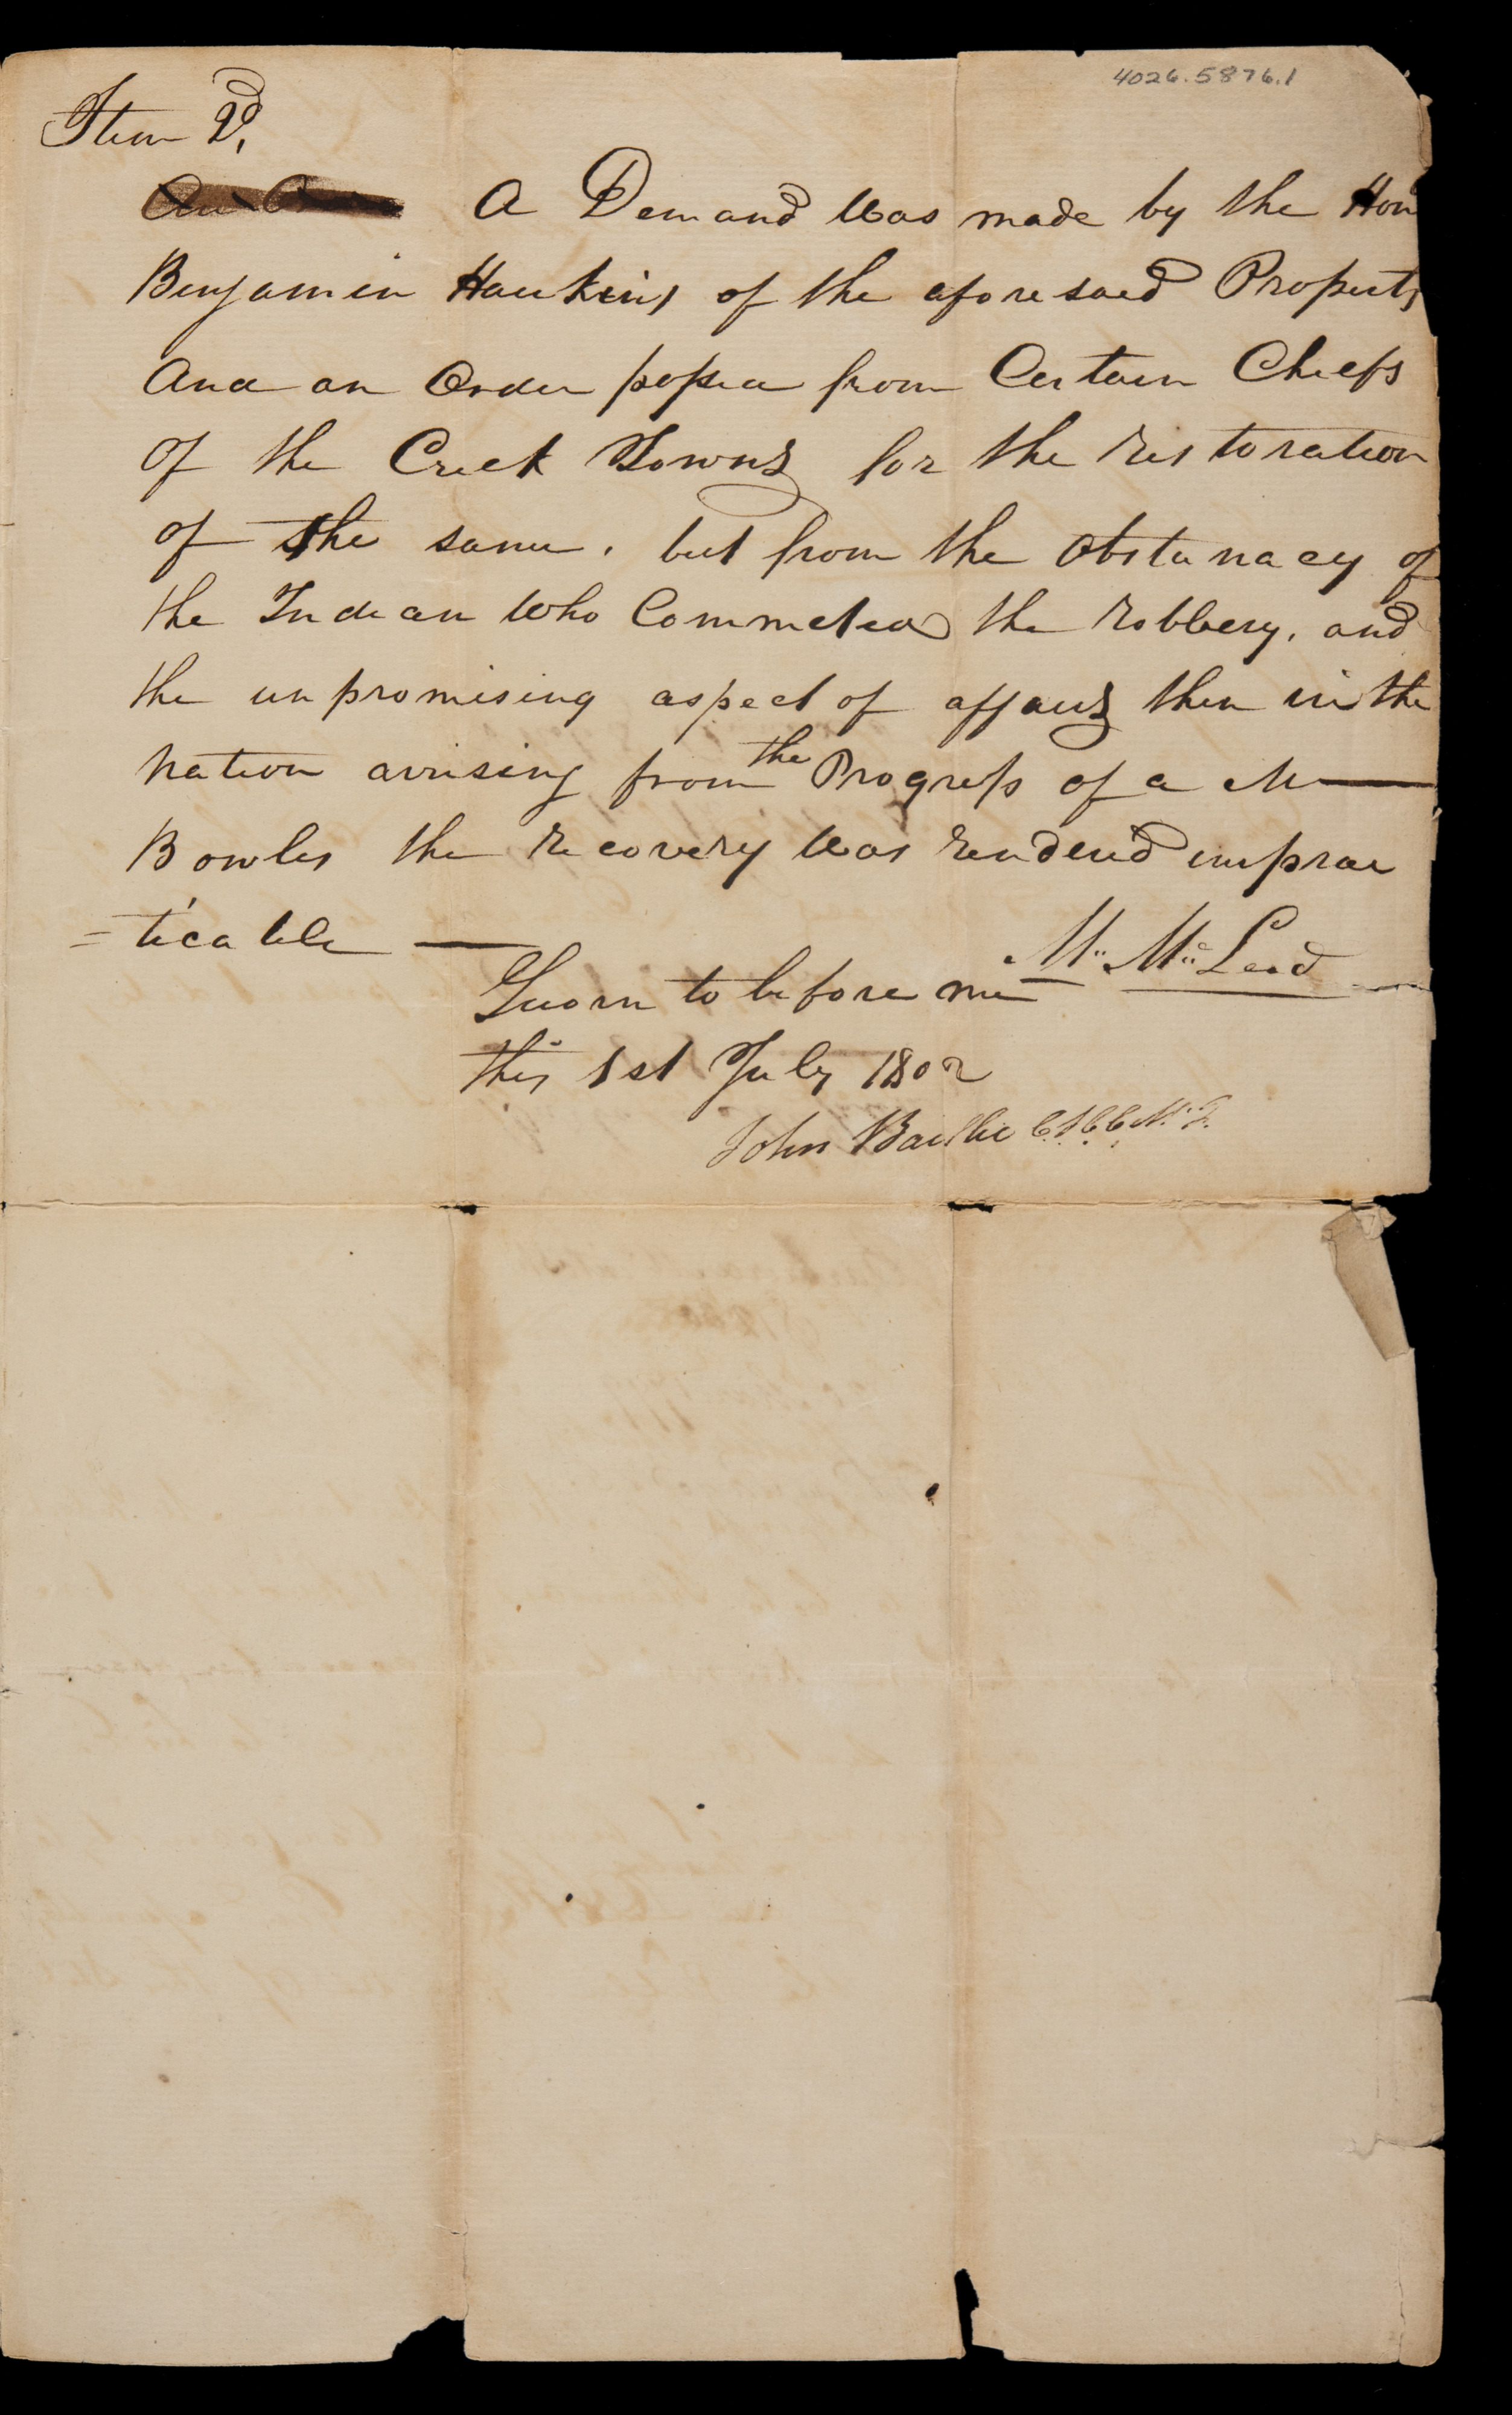 4026.5876.1
Item 2d,
A Demand was made by the Hon
Benjamin Hawkins of the aforesaid Property
And an Order passed from Certain Chiefs
Of the Creek Towns for the restoration
of the same, but from the Obstanacy of
the Indian who Commeted the robbery, and
the unpromising aspect of affairs then in the
Nation arrising from the Progress of a M
Bowles the recovery was rendered imprac
=ticable
M. McLeod
Sworn to before me
this 1st July 1802
John Baillie